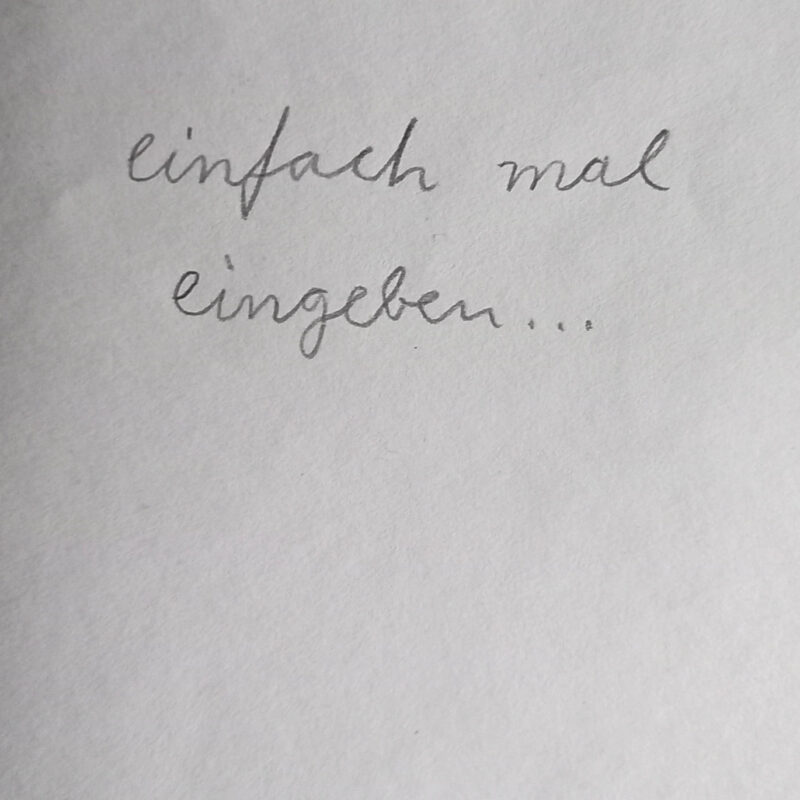 einfach mal
eingeben...